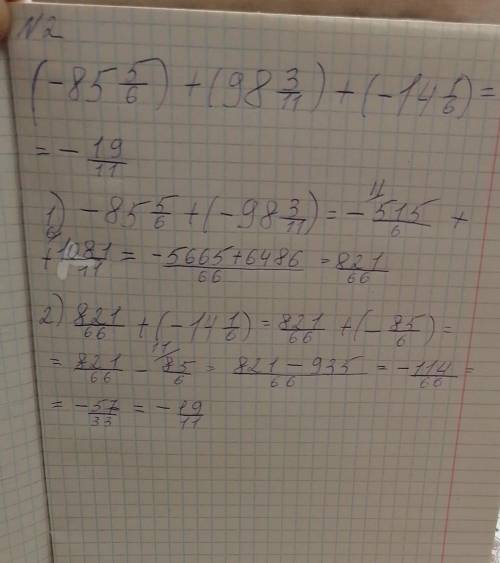 N2
(-85 5/6) + (98 3/11) + (-14 1/6) =
= - 19/11
1) -85 5/6 + (-98 3/11) = - 515/6 +
+ 1081/11 = -5665+6486/66 = 821/66
2) 821/66 + (-14 1/6) = 821/66 + (- 85/6) =
= 821/66 - 85/6 = 821-935/66 = - 114/66 =
= - 57/33 = - 19/11